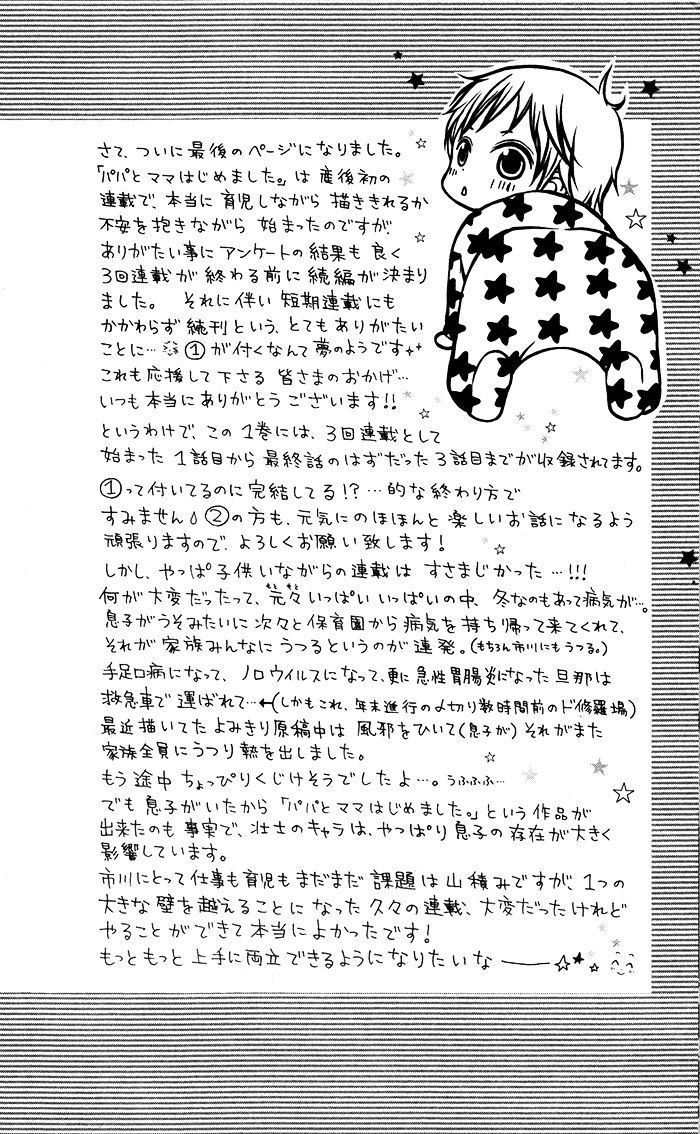 さて、ついに最後のページになりました。
「パパとママはじめました。」は産後初の
連載で、本当に育児しながら描ききれるか
不安を抱きながら始まったのですが、
ありがたい事にアンケートの結果も良く
3回連載が終わる前に続編が決まり
ました。 それに伴い短期連載にも
かかわらず続刊という、とてもありがたい
ことに… ①が付くなんて夢のようです
これも応援して下さる皆さまのおかげ…
いつも本当にありがとうございます!!
というわけで、この1巻には、3回連載として
始まった1話目から最終話のはずだった3話目までが収録されてます。
①って付いてるのに完結してる!?…的な終わり方で
すみません ②の方も、元気にのほほんと楽しいお話になるよう
頑張りますので、よろしくお願い致します!
しかし、やっぱ子供いながらの連載はすさまじかった…!!!
何が大変だったって、元々いっぱいいっぱいの中、冬なのもあって病気が…。
もともと
息子がうそみたいに次々と保育園から病気を持ち帰って来てくれて、
それが家族みんなにうつるというのが連発。(もちろん市川にもうつる。)
手足口病になって、ノロウイルスになって、更に急性胃腸炎になった旦那は
救急車で運ばれて…←(しかもこれ、年末進行の〆切り数時間前のド修羅場)
最近描いてたよみきり原稿中は風邪をひいて(息子が)それがまた
家族全員にうつり熱を出しました。
もう途中ちょっぴりくじけそうでしたよ…。うふふふ…
でも息子がいたから「パパとママはじめました。」という作品が
出来たのも事実で、壮士のキャラは、やっぱり息子の存在が大きく
影響しています。
市川にとって仕事も育児もまだまだ課題は山積みですが、1つの
大きな壁を越えることになった久々の連載、大変だったけれど
やることができて本当によかったです!
もっともっと上手に両立できるようになりたいな――